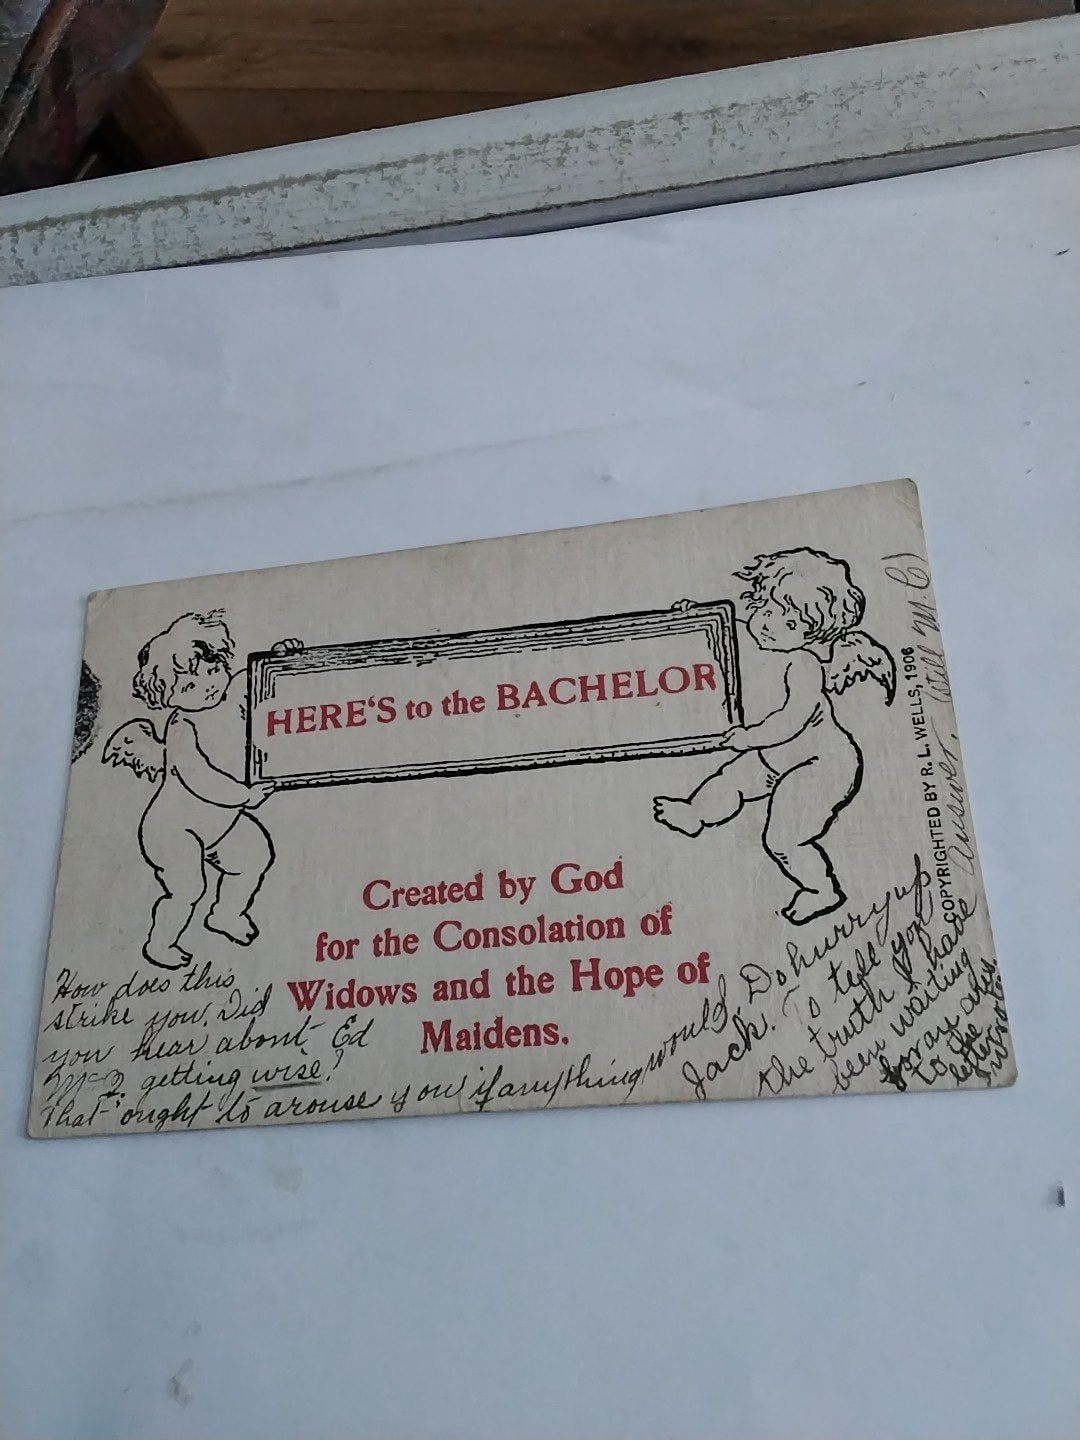 HERE'S to the BACHELOR
Created by God
for the Consolation of
Widows and the Hope of
Maidens.
COPYRIGHTED BY R. L. WELLS, 1906
How does this
strike you. Did
you hear about Ed
getting wise?
That ought to arouse you if anything would.
Jack. Do hurry up
the truth I have
been waiting
for an
to the
letter
I wrote
you
To tell
answer. (still M.C)